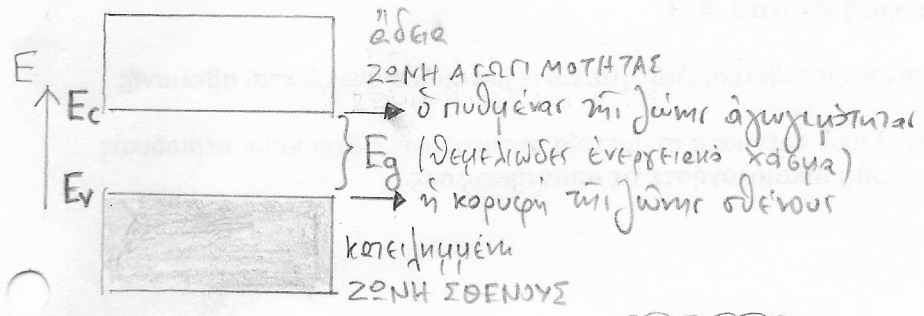 ἄδεια
E
ΖΩΝΗ ΑΓΩΓΙΜΟΤΗΤΑΣ
Ec → ὁ πυθμένας τῆς ζώνης ἀγωγιμότητας
Eg (θεμελιῶδες ἐνεργειακό χάσμα)
Ev → ἡ κορυφή τῆς ζώνης σθένους
κατειλημμένη
ΖΩΝΗ ΣΘΕΝΟΥΣ